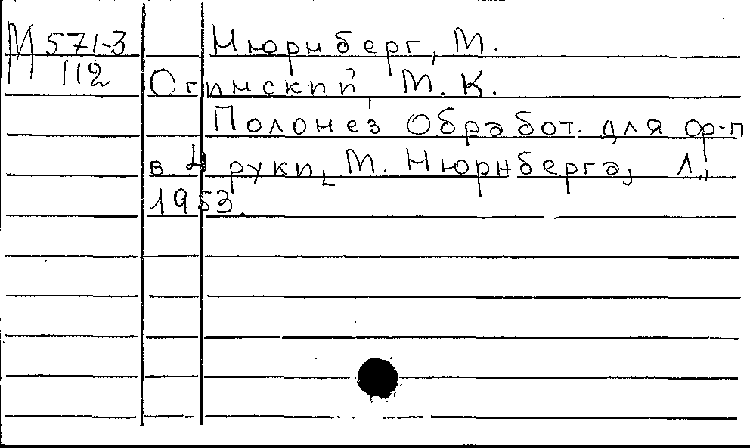 М 571-3
112
Нюрнберг, М.
Огинский, М. К.
Полонез Обработ. для ф-п
в 4 руки, М. Нюрнберга, Л.,
1953.